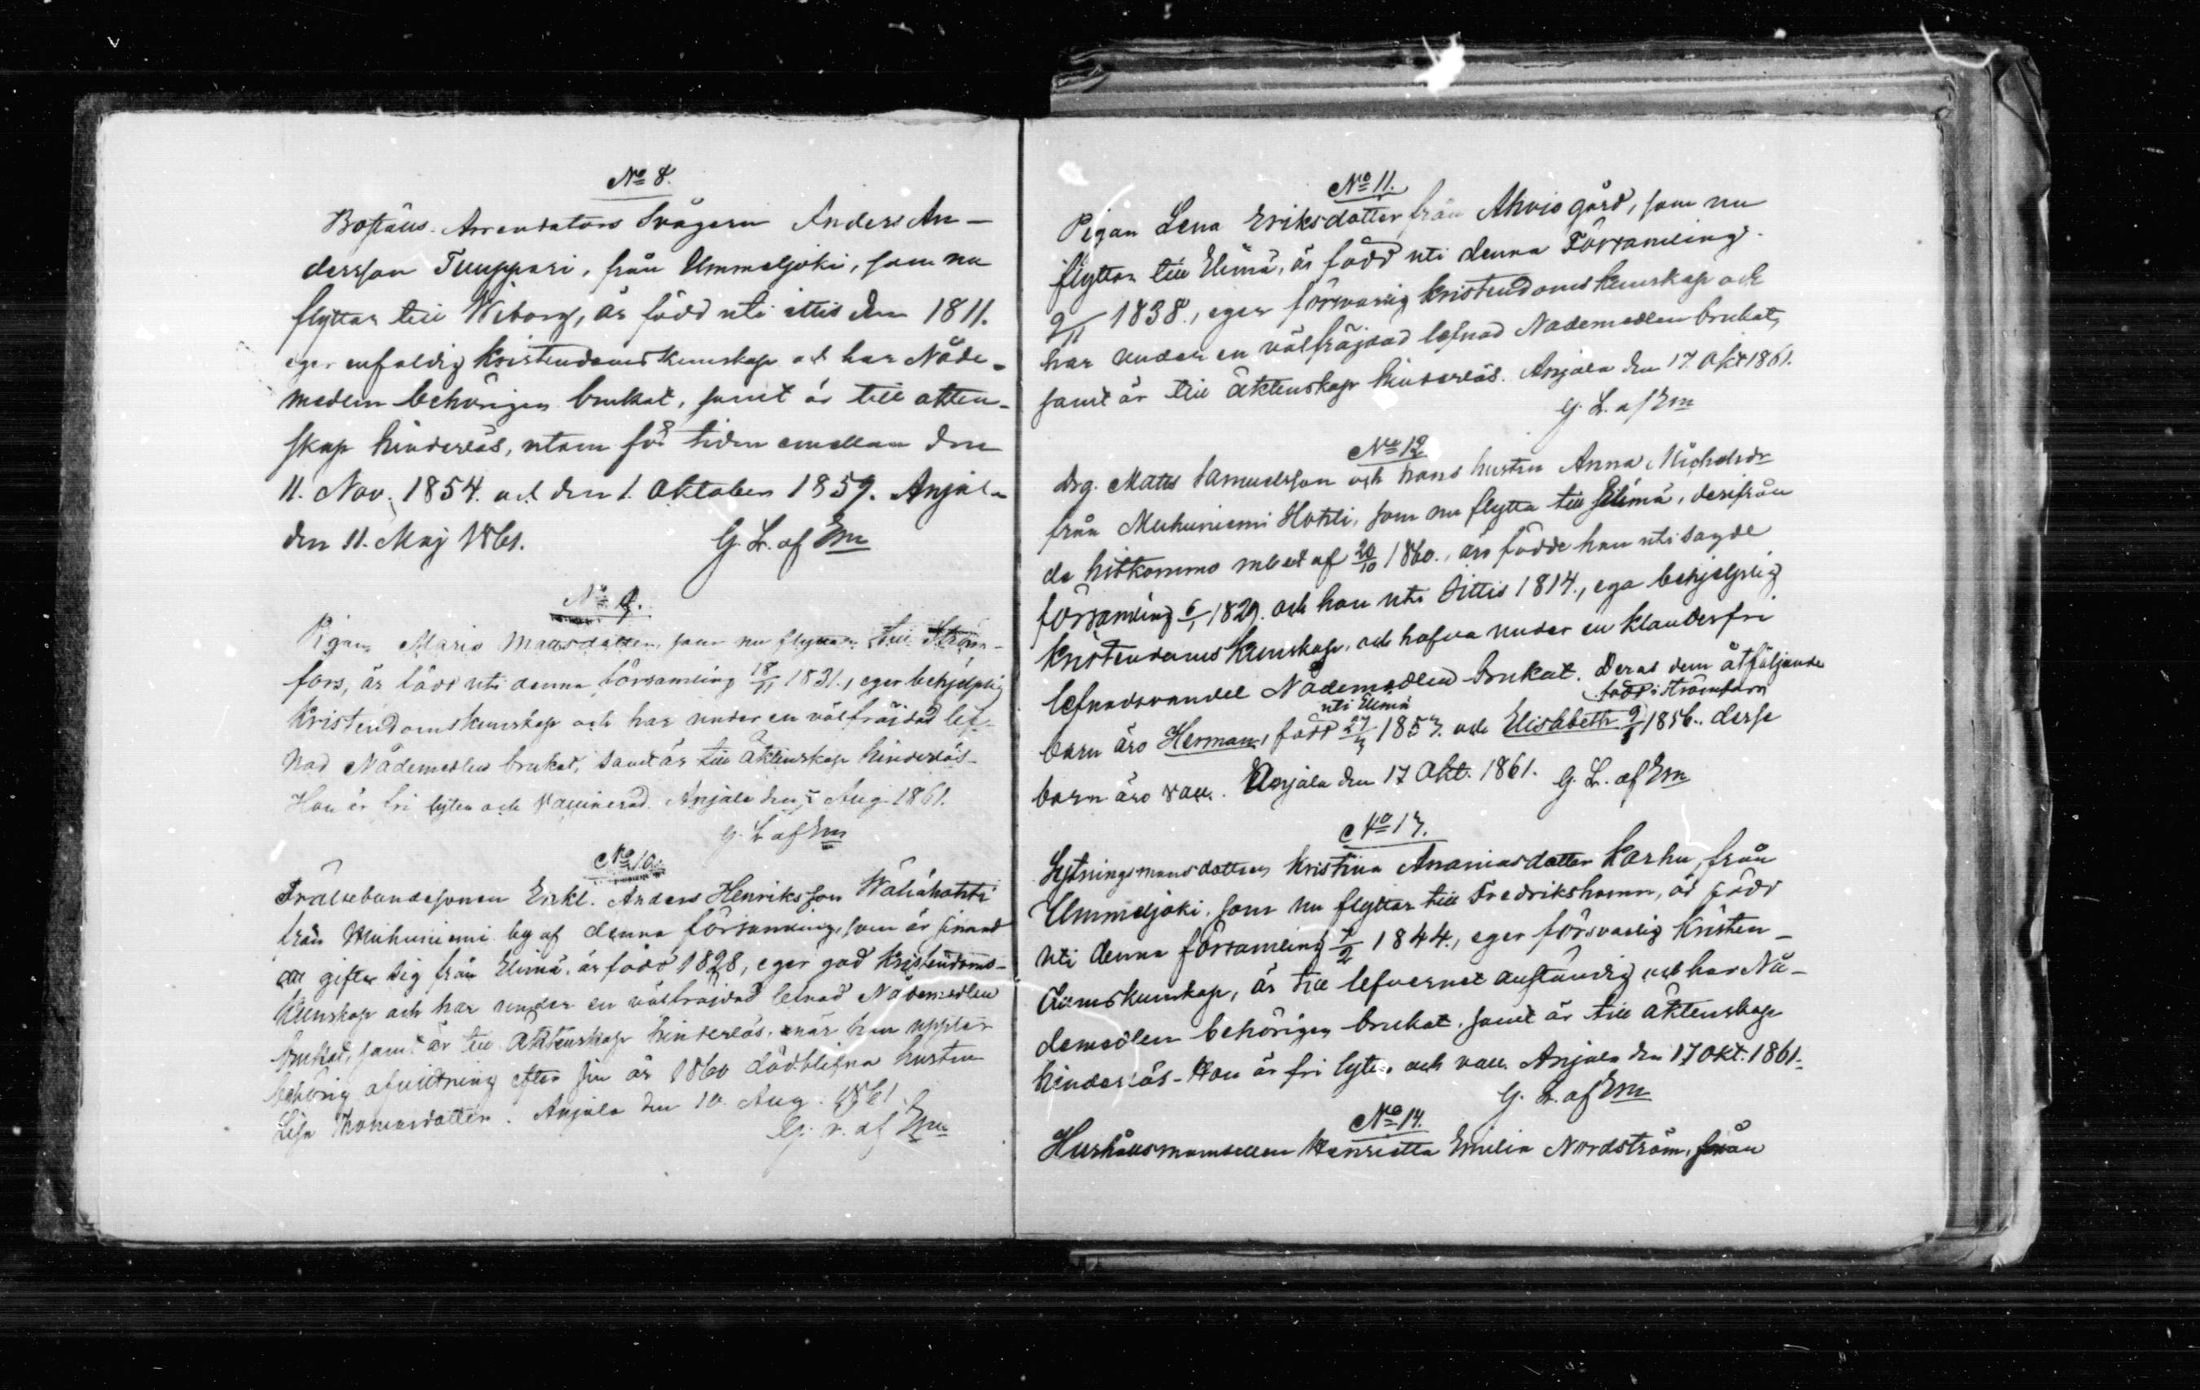 No 8.
Boställs Arrendators Svågern Anders An-
dersson Tuuppari, från Ummeljoki, som nu
flyttar till Wiborg, är född uti ittis den 1811.
eger enfaldig kristendomskunskap och har Nåde-
medlen behörigen brukat, samt är till äkten-
skap hinderlös, utom för tiden emellan den
11. Nov. 1854. och den 1. Oktober 1859. Anjala
den 11. Maj 1861. G. L. af Em
No 9.
Pigan Maria Mattsdotter, som nu flyttar till Ström-
fors, är född uti denna församling 18/11 1831., eger behjelplig
Kristendomskunskap och har under en välfräjdad lef-
nad Nådemedlen brukat, samt är till äktenskap hinderlös.
Hon är fri lyten och vaccinerad. Anjala den Aug. 1861.
G. L. af Em
No 10.
Frälsebondesonen Enkl. Anders Henriksson Wäliähohti
från Muhuniemi by af denna församling, som är sinnad
att gifta sig från Elimä, är född 1828, eger god kristendoms-
kunskap och har under en välfräjdad lefnad Nådemedlen
brukat, samt är till äktenskap hinderlös, när han uppter
behörig afvittring efter sin år 1860 dödblifna hustru
Lisa Thomasdotter. Anjala den 10. Aug. 1861.
G. L. af Em
No 11.
Pigan Lena Eriksdotter från Ahvio gård, som nu
flyttar till Elimä, är född uti denna Församling
9/11 1838., eger försvarlig kristendomskunskap och
har under en välfräjdad lefnad Nådemedlen brukat,
samt är till äktenskap hinderlös. Anjala den 17. Okt 1861.
G. L. af Em
No 12.
Drg. Matts Samuelsson och hans hustru Anna Michelsdr
från Muhuniemi Hohti, som nu flytta till Elimä, derifrån
de hitkommo m bet af 20/10 1860., äro födde han uti sagde
församling 6/1 1829. och hon uti Sittis 1814., ega behjelplig
kristendomskunskap, och hafva under en klanderfri
lefnadsvandel Nådemedlen brukat. Deras dem åtföljande
uti Elimä född i Strömfors
barn äro Herman, född 27/3 1853. och Elisabeth 9/8 1856. desse
barn äro vacc. Anjala den 17 Okt. 1861. G. L. af Em
No 13.
Lytningsmansdottren Kristina Ananiasdotter Karhu, från
Ummeljoki, som nu flyttar till Fredrikshamn, är född
uti denna församling 7/2 1844., eger försvarlig Kristen-
domskunskap, är till lefvernet anständig och har Nå-
demedlen behörigen brukat, samt är till äktenskap
hinderlös. Hon är fri lyte, och vacc. Anjala den 17 Okt. 1861.
G. L. af Em
No 14.
Hushållsmamsellen Henrietta Emilia Nordström, från